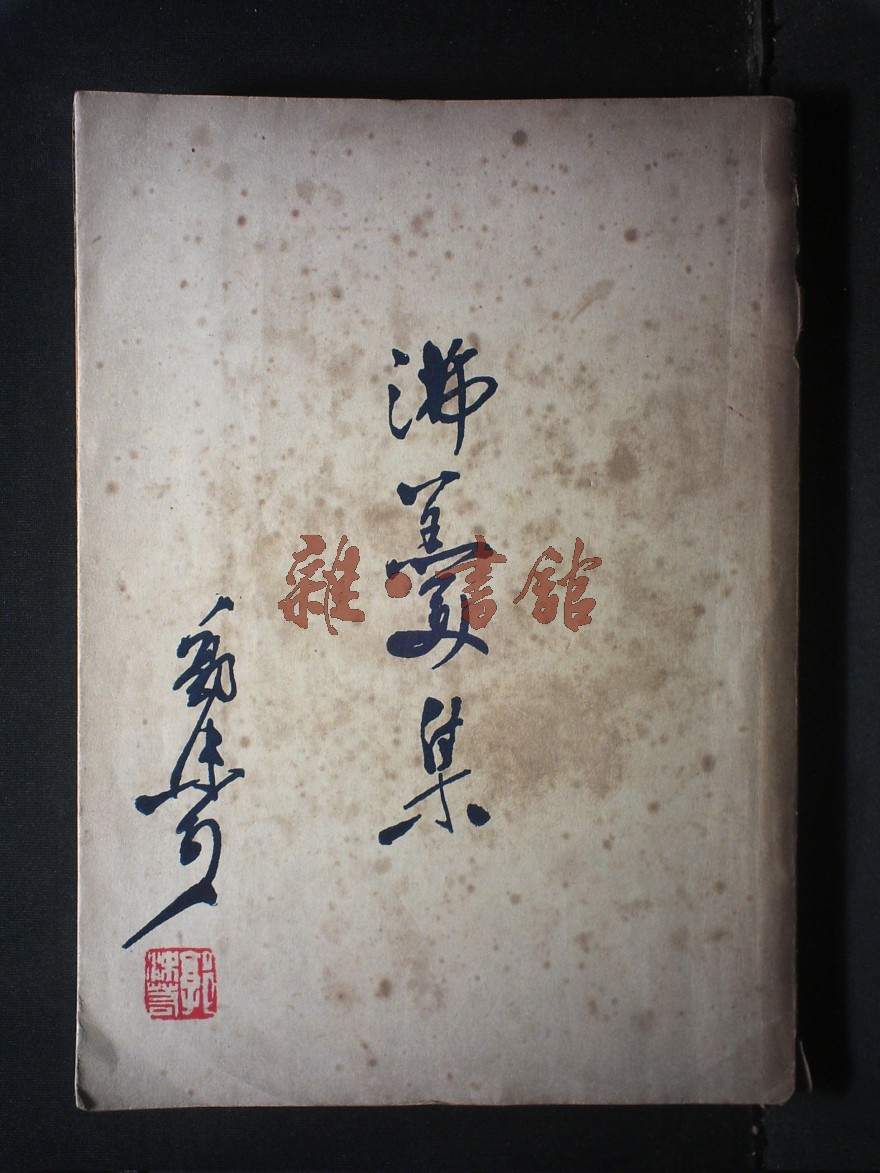 沸羹集
郭沫若
郭沫若
雜·書館